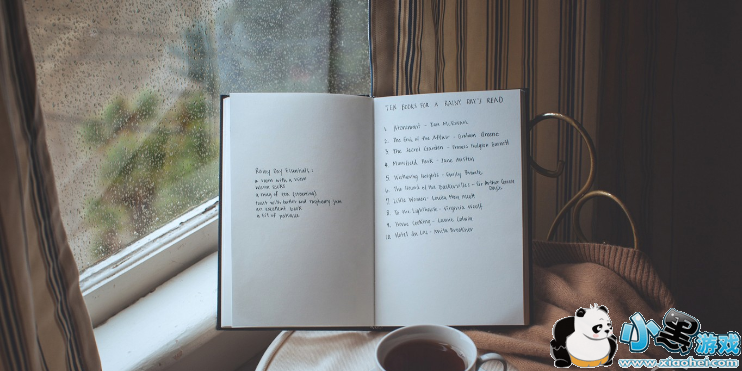 Rainy Day Essentials:
a room with a view
warm socks
a mug of tea (steaming)
toast with butter and raspberry jam
an excellent book
a bit of patience
TEN BOOKS FOR A RAINY DAY'S READ
1. Atonement - Ian McEwan
2. The End of the Affair - Graham Greene
3. The Secret Garden - Frances Hodgson Burnett
4. Mansfield Park - Jane Austen
5. Wuthering Heights - Emily Bronte
6. The Hound of the Baskervilles - Sir Arthur Conan
Doyle
7. Little Women - Louisa May Alcott
8. To the Lighthouse - Virginia Woolf
9. Home Cooking - Laurie Colwin
10. Hotel du Lac - Anita Brookner
小黑游戏
www.xiaohei.com